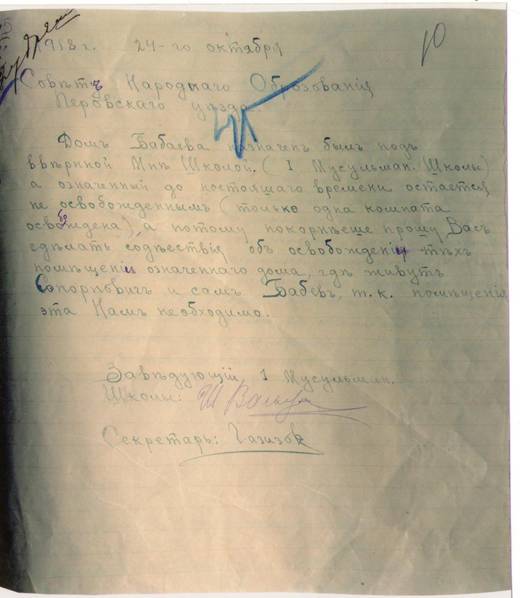 1918 г. 24-го октября
10
Совѣтъ Народнаго Образованія
Перовскаго уѣзда
Домъ Бабаева назначенъ былъ подъ
ввѣренной Мнѣ Школой, (I Мусульман. Школы)
а означенный до настоящаго времени остается
не освобожденнымъ (только одна комната
освобождена), а потому покорнѣйше прошу Васъ
сдѣлать содѣйствія объ освобожденіи тѣхъ
помѣщеніи означеннаго дома, гдѣ живутъ
и самъ Бабаевъ, т.к. помѣщенія
эта Намъ необходимо.
Завѣдующій 1 Мусульман.
Школы:
Секретарь: